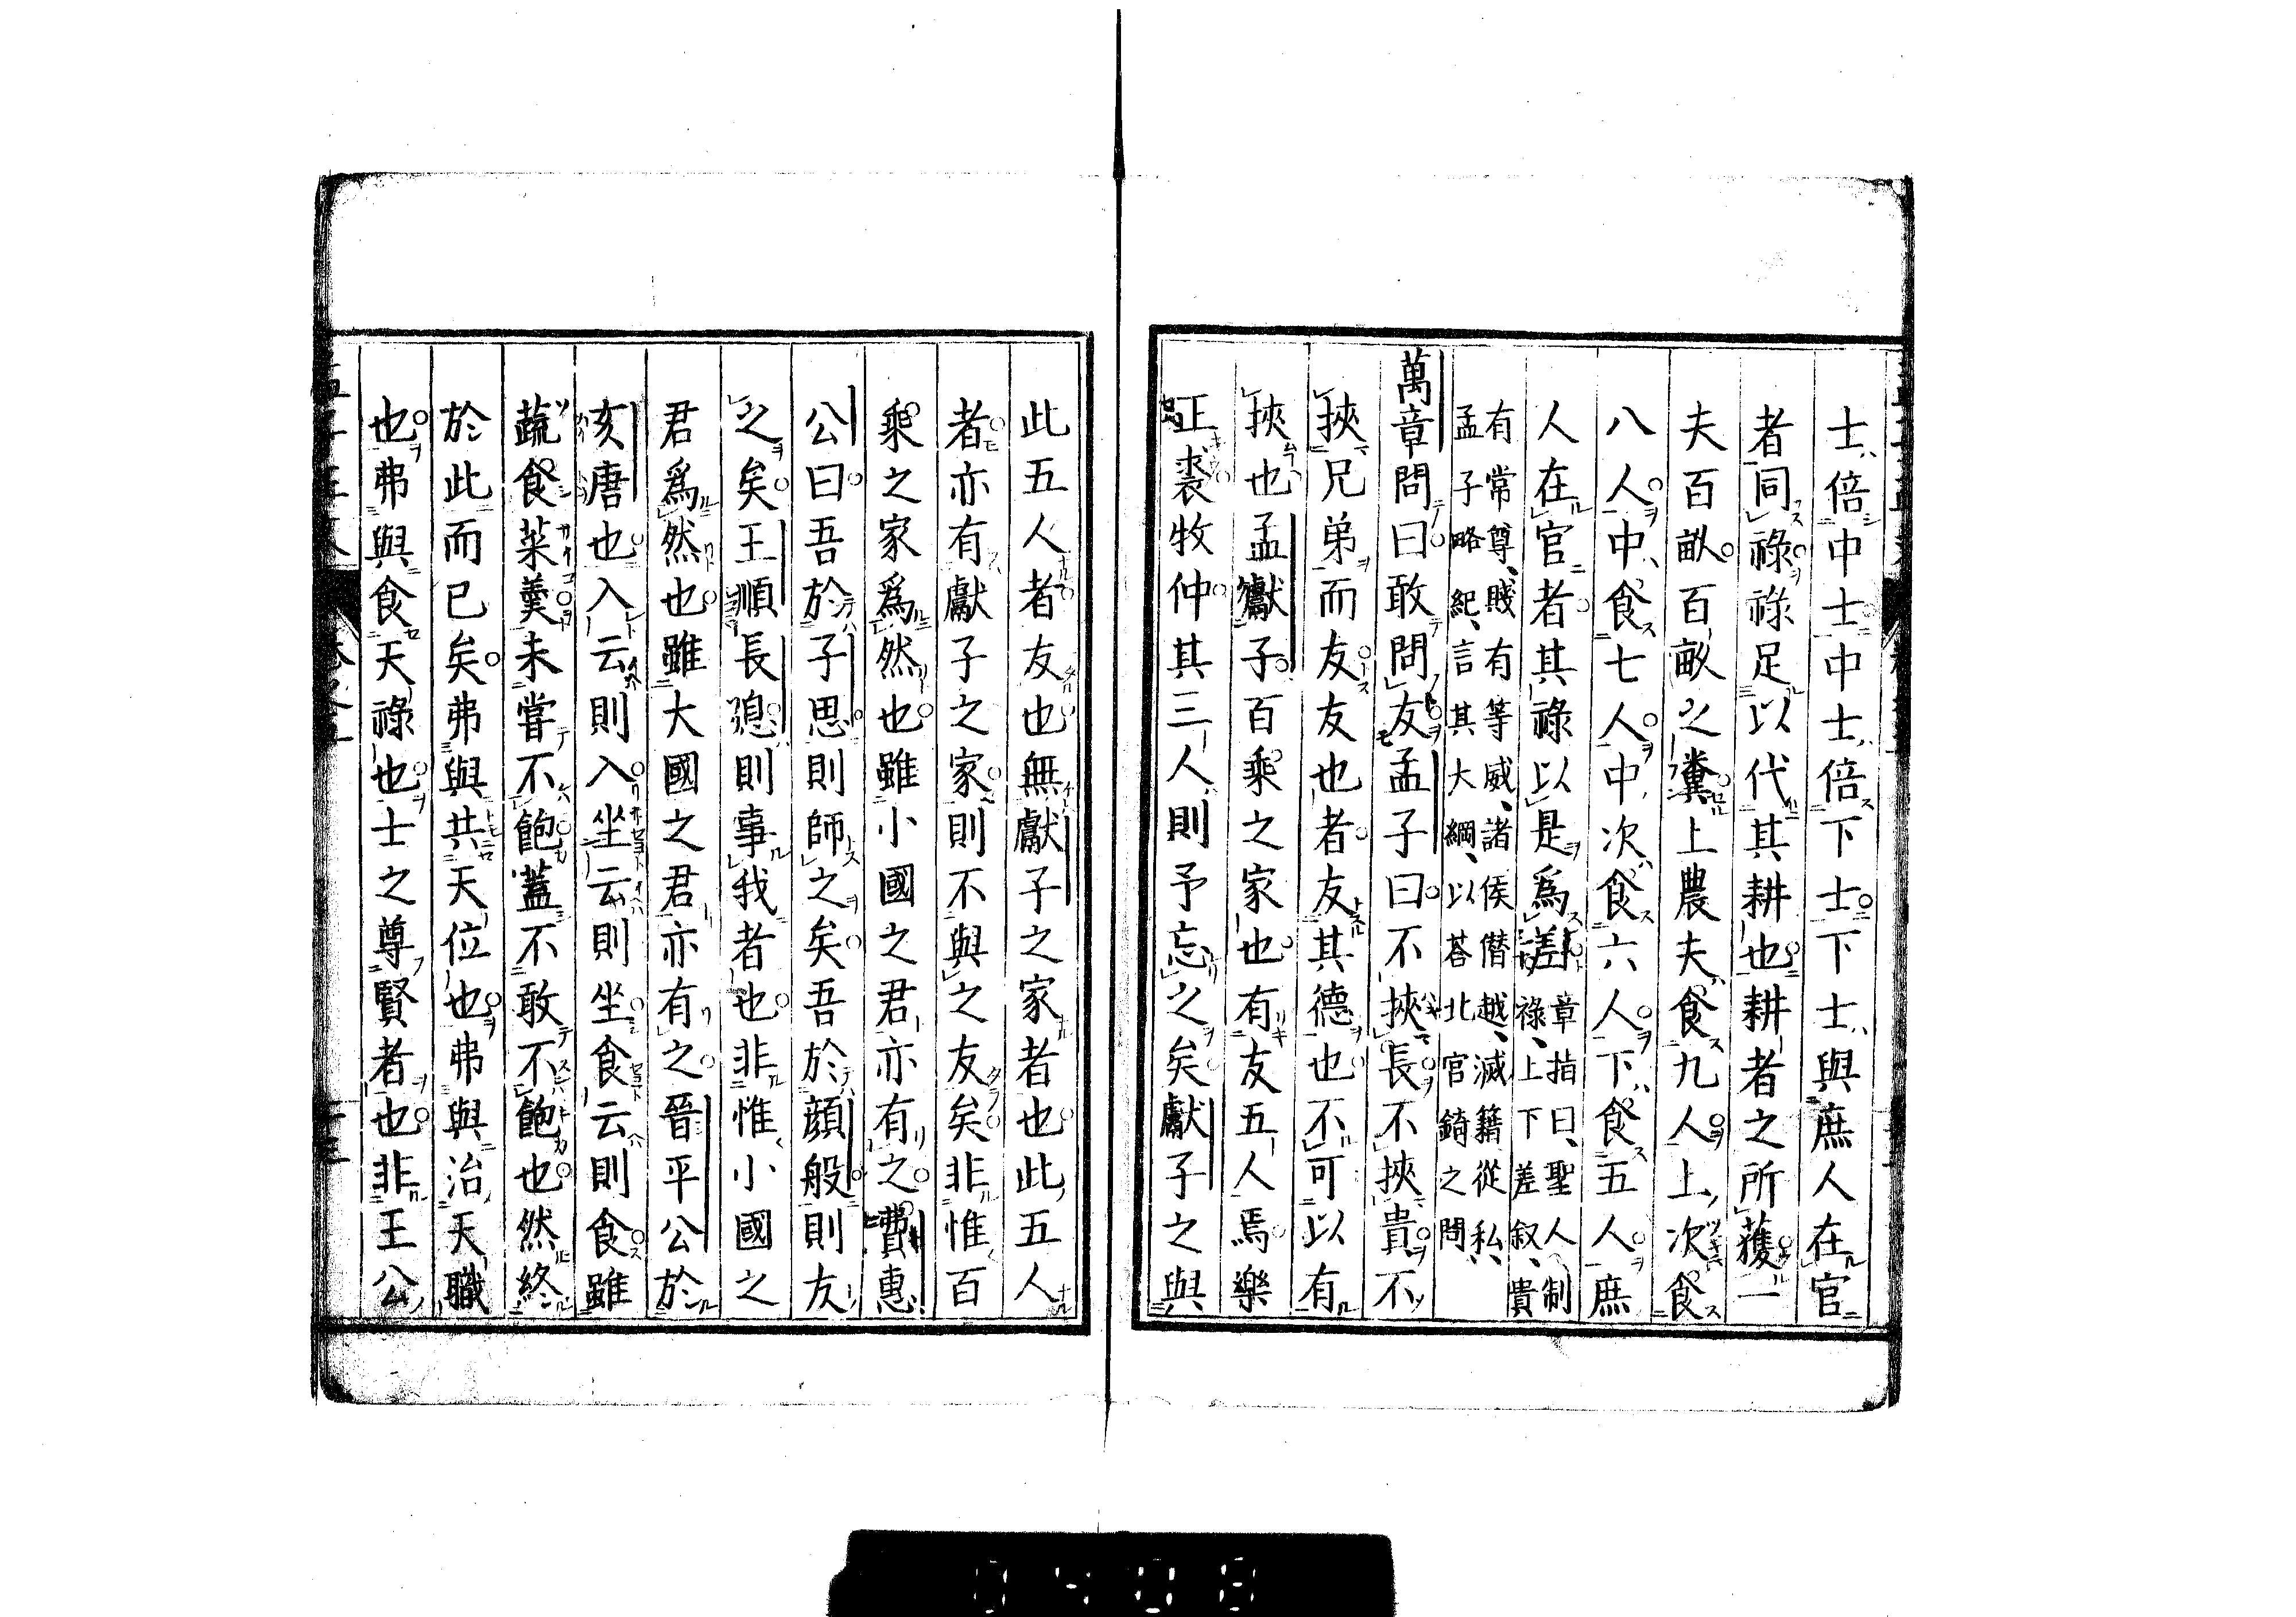 士倍中士中士倍下士下士與庶人在官
者同祿祿足以代其耕也耕者之所獲一
夫百畝百畝之糞上農夫食九人上次食
八人中食七人中次食六人下食五人庶
人在官者其祿以是爲差章指曰聖人制祿上下差叙貴
有常尊賤有等威諸侯僭越滅籍從私
孟子略紀言其大綱以荅北宮錡之問
萬章問曰敢問友孟子曰不挾長不挾貴不
挾兄弟而友友也者友其德也不可以有
挾也孟獻子百乘之家也有友五人焉樂
正裘牧仲其三人則予忘之矣獻子之與
此五人者友也無獻子之家者也此五人
者亦有獻子之家則不與之友矣非惟百
乘之家爲然也雖小國之君亦有之費惠
公曰吾於子思則師之矣吾於顔般則友
之矣王順長息則事我者也非惟小國之
君爲然也雖大國之君亦有之晉平公於
亥唐也入云則入坐云則坐食云則食雖
蔬食菜羹未嘗不飽蓋不敢不飽也然終
於此而已矣弗與共天位也弗與治天職
也弗與食天祿也士之尊賢者也非王公
0408